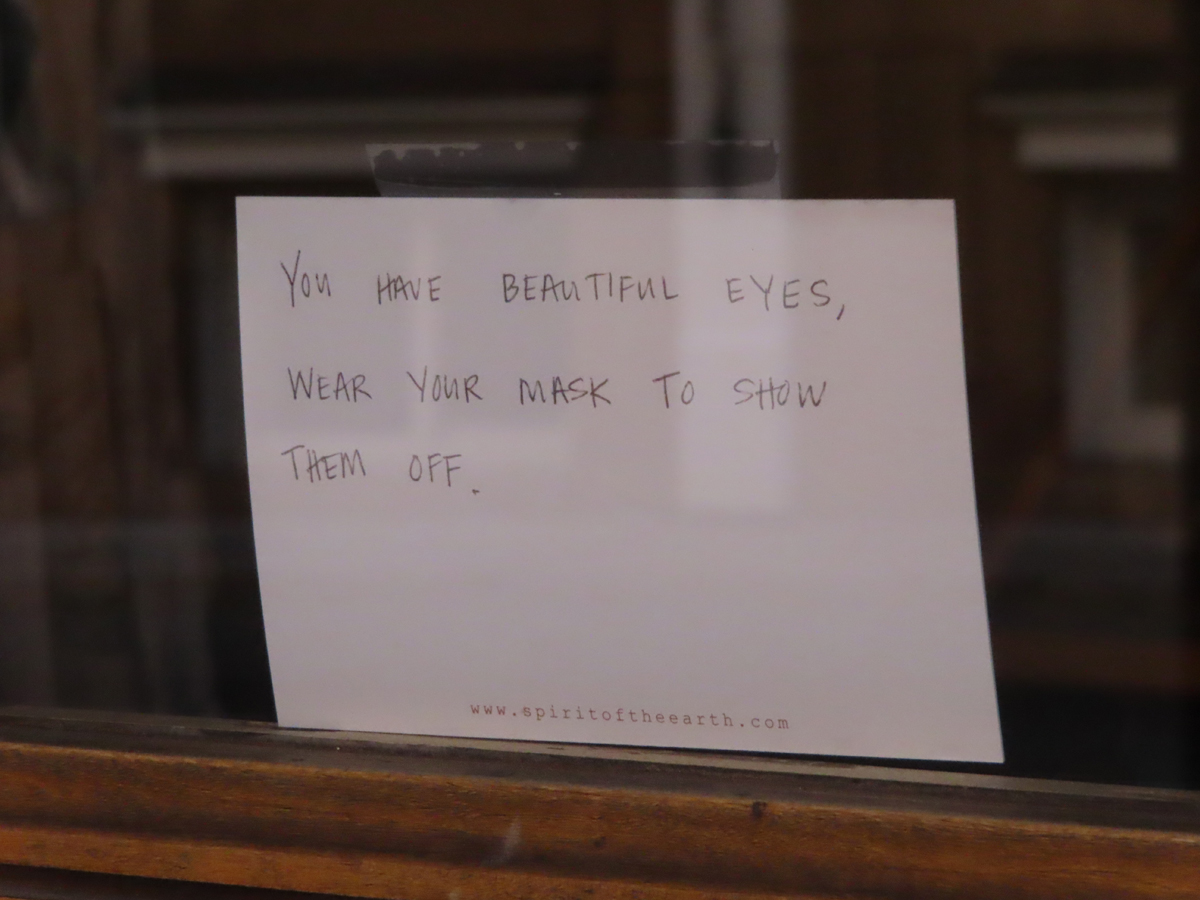 You HAVE BEAUTIFUL EYES,
WEAR YOUR MASK TO SHOW
THEM OFF.
www.spiritoftheearth.com